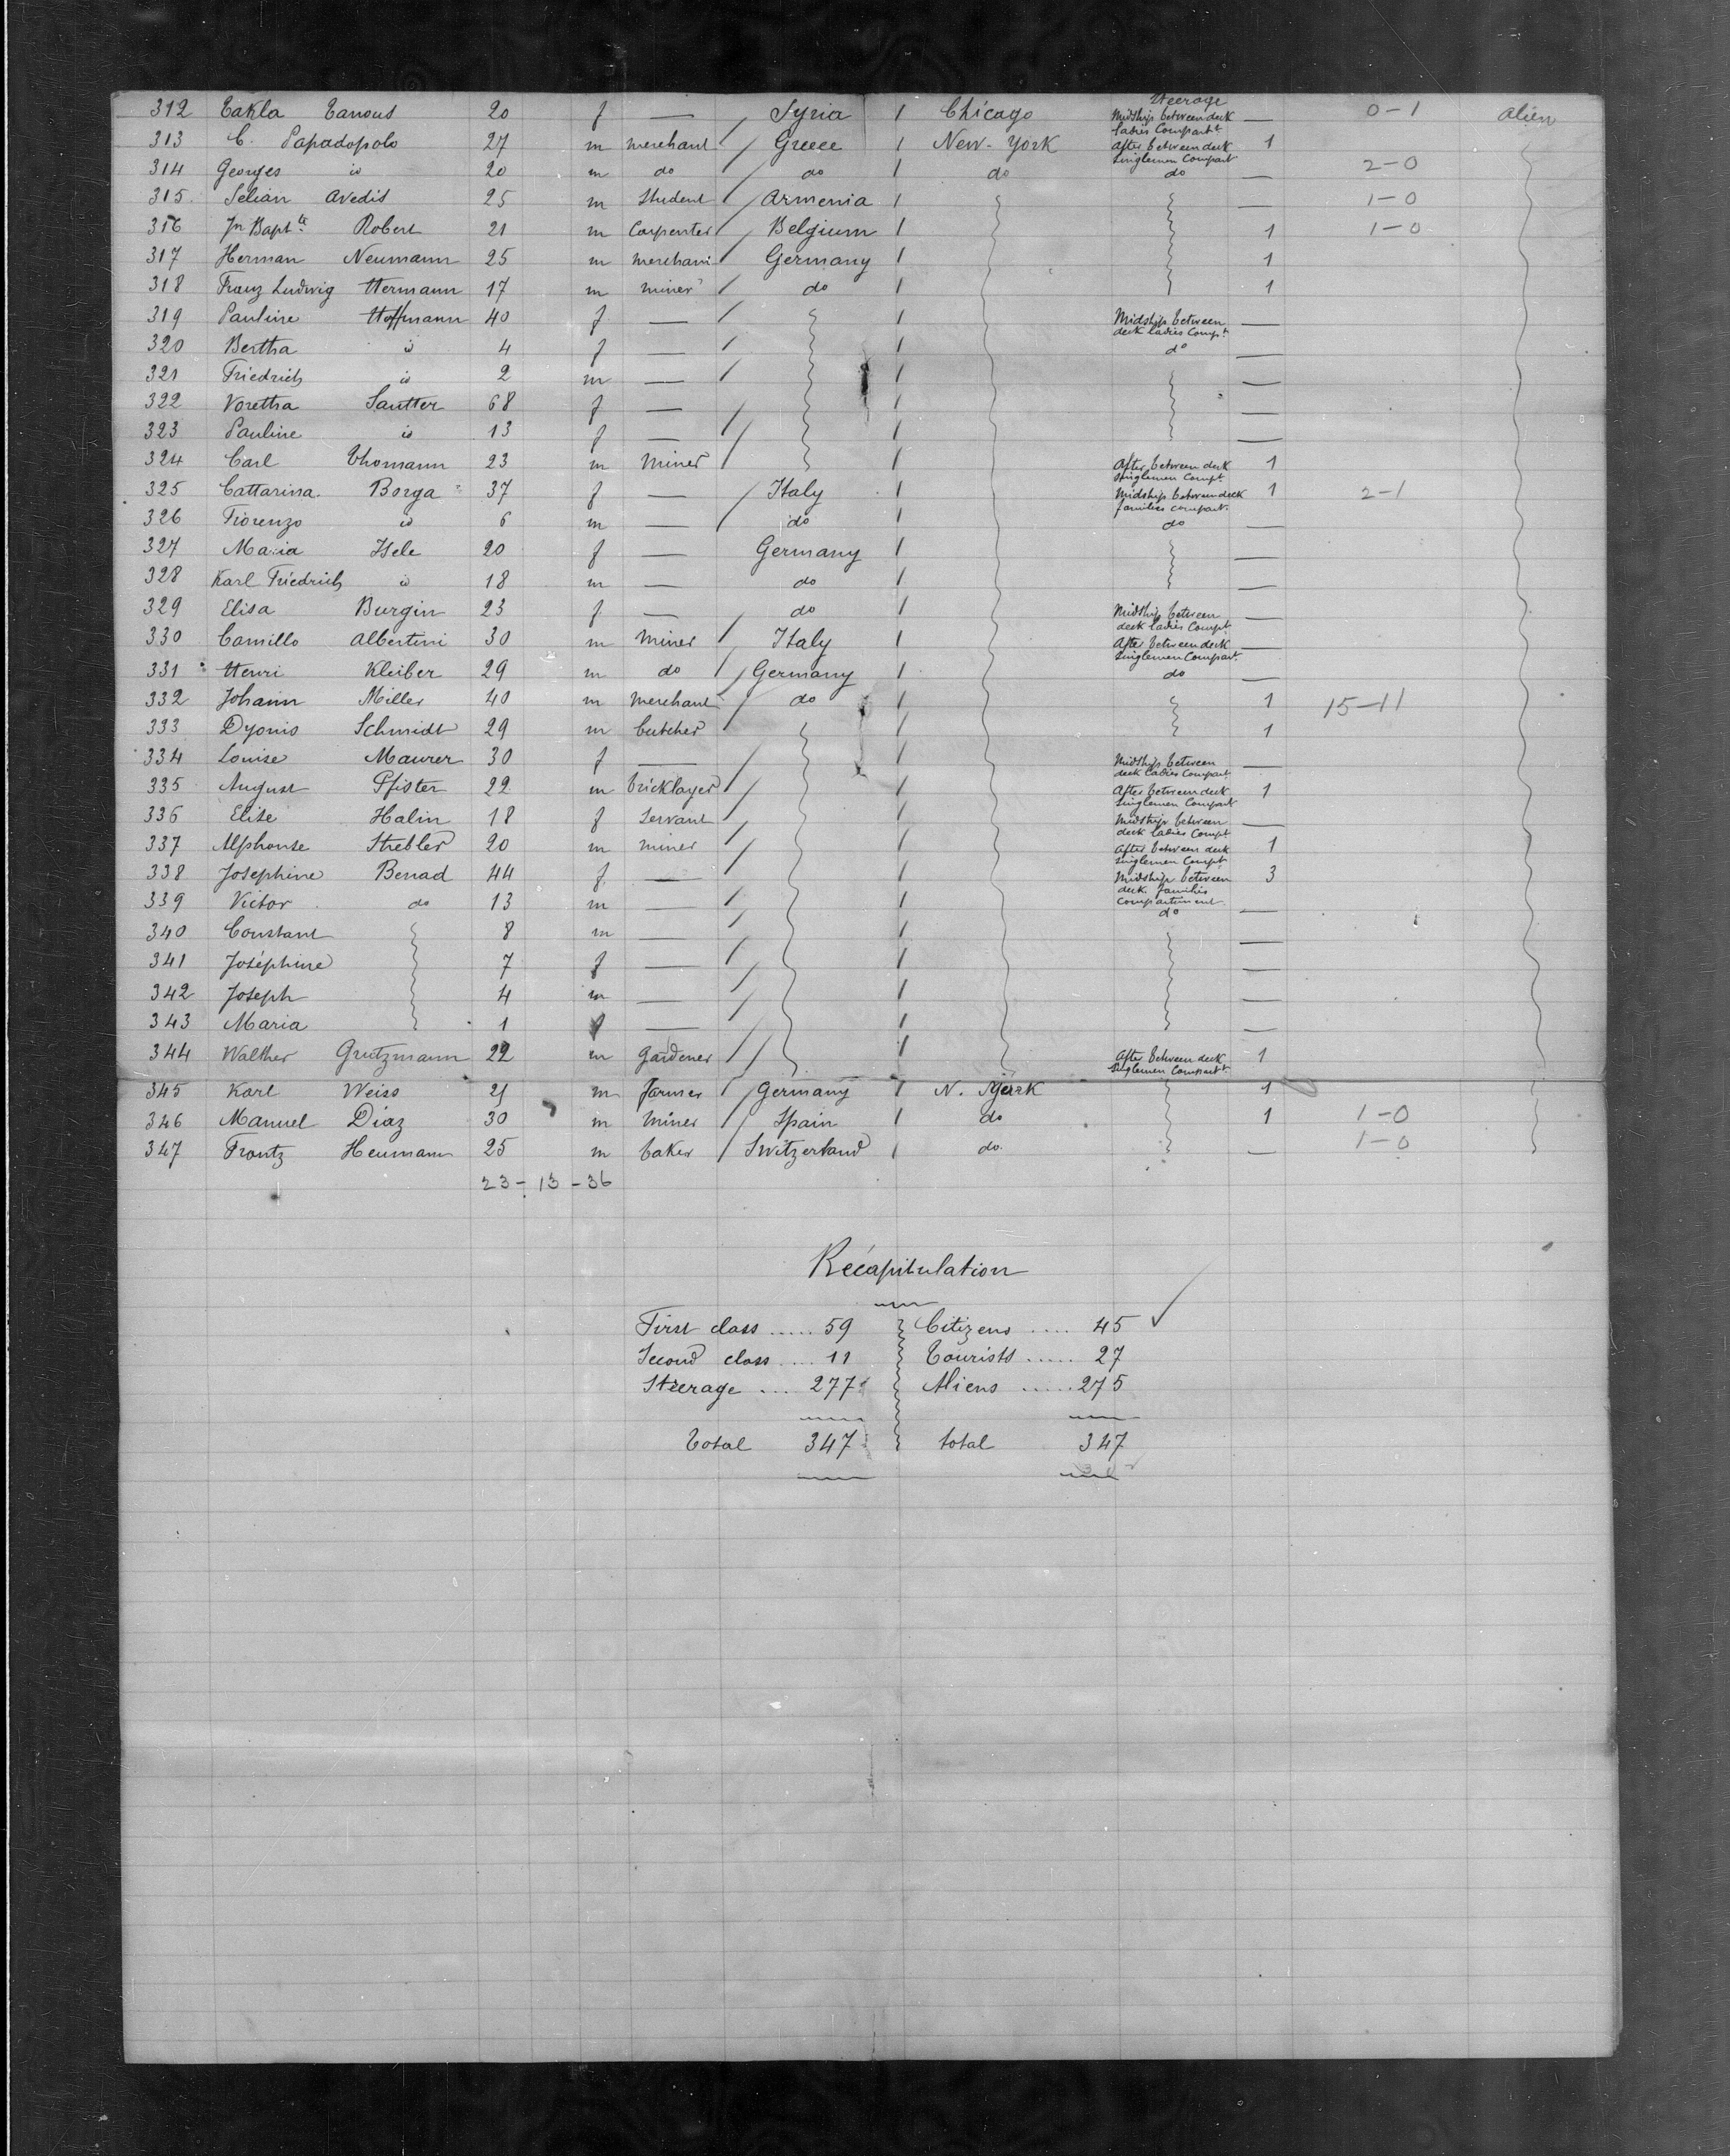 Steerage
312 Takla Tanous 20 f — / Syria / Chicago Midship between deck ladies Compartt — 0-1 alien
313 C. Papadopolo 27 m merchant / Greece / New-York After between deck singlemen Compart 1
314 Georges id 20 m do / do / do do — 2-0
315 Selian Avedis 25 m Student / Armenia / — 1-0
316 Jn Bapt.te Robert 21 m Carpenter / Belgium / 1 1-0
317 Herman Neumann 25 m merchant / Germany / 1
318 Franz Ludwig Hermann 17 m miner / do / 1
319 Pauline Hoffmann 40 f — / / Midship between deck ladies Comp.t —
320 Bertha id 4 f — / / do —
321 Friedrich id 2 m — / / —
322 Voretha Sautter 68 f — / / —
323 Pauline id 13 f — / / —
324 Carl Thomann 23 m miner / / After between deck singlemen Compt 1
325 Cattarina Borga 37 f — / Italy / Midship between deck families compart. 1 2-1
326 Fiorenzo id 6 m — / do / do —
327 Maria Isele 20 f — Germany / —
328 Karl Friedrich id 18 m — do / —
329 Elisa Burgin 23 f — do / Midship between deck ladies Compt —
330 Camillo Albertini 30 m miner / Italy / After between deck singlemen Compart. —
331 Henri Kleiber 29 m do / Germany / do —
332 Johann Miller 40 m merchant / do / 1 15-11
333 Dyonis Schmidt 29 m butcher / / 1
334 Louise Maurer 30 f — / / Midship between deck ladies Compart —
335 August Pfister 22 m bricklayer / / After between deck singlemen Compart 1
336 Elise Halin 18 f Servant / / Midship between deck ladies Compt —
337 Alphonse Strebler 20 m miner / / After between deck singlemen Compt 1
338 Josephine Benad 44 f — / / Midship between deck families compartiment 3
339 Victor do 13 m — / / do —
340 Constant 8 m — / / —
341 Joséphine 7 f — / / —
342 Joseph 4 m — / / —
343 Maria 1 f — / / —
344 Walther Grutzmann 22 m gardener / / After between deck singlemen Compartt 1
345 Karl Weiss 21 m farmer / Germany / N. York 1
346 Manuel Diaz 30 m miner / Spain / do 1 1-0
347 Frantz Heumann 25 m baker / Switzerland / do — 1-0
23 - 13 - 36
Récapitulation
First class ..... 59 Citizens .... 45 ✓
Second class .... 11 Tourists ..... 27
Steerage .... 277 Aliens ..... 275
Total 347 total 347